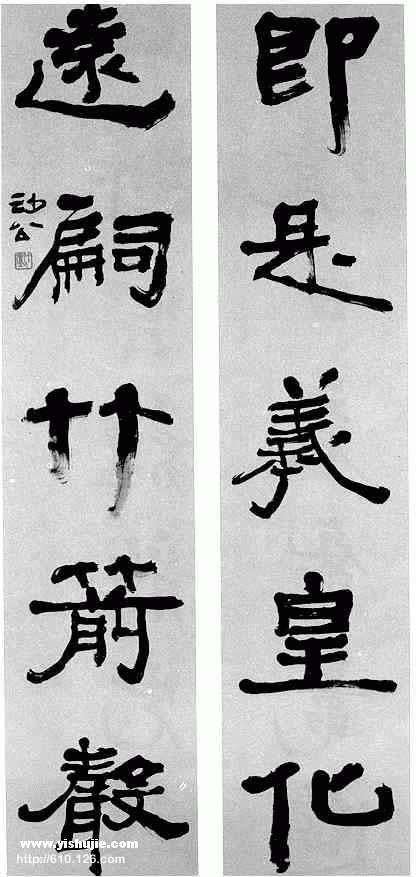 即是羲皇化
遠嗣竹箭聲
www.yishujie.com
http://610.126.com